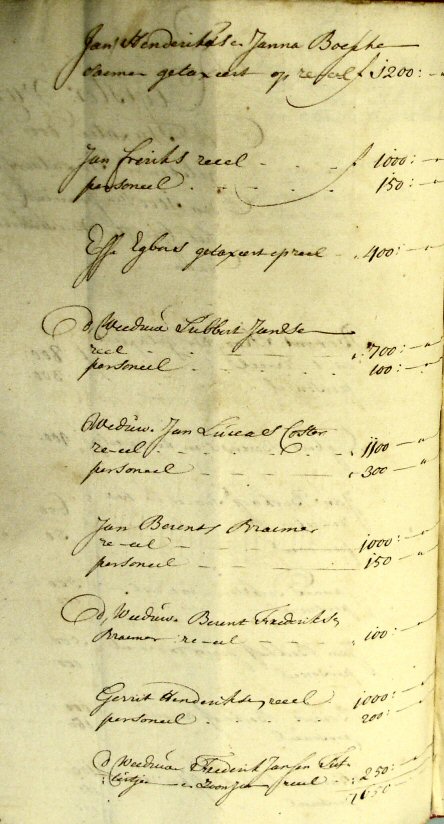 Jan Henderiks en Janna
samen getaxeert op reeel f 1200:-
Jan freriks reeel - - f 1000:-
personeel - - - 150:-
Egberts getaxeert op reeel - 400:-
d' Weduwe Lubbert Jansen
reeel - - - 700:-
personeel - - - 100:-
Weduwe Jan Lucas Coster
re-eel - - - 1100 -
personeel - - - 300 -
Jan Berents Braemer
re-eel - - - 1000:-
personeel - - - 150 -
d' Weduwe Berent Frederiks
Braemer re-eel - - 100:-
Gerrit Henderiks reeel 1000:-
personeel - - - 200:-
d' Weduwe Frederik Jansen
en Zoon reeel - 250:-
7650